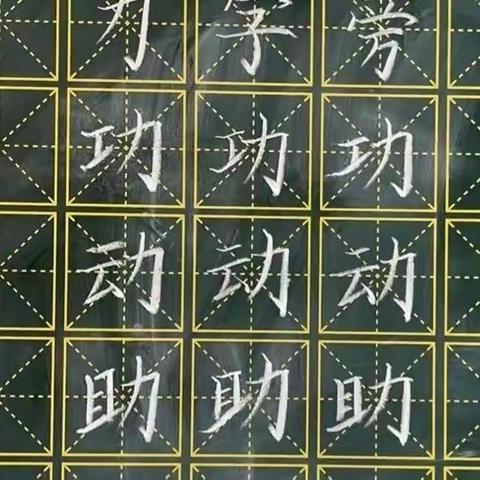 功 功 功
动 动 动
助 助 助